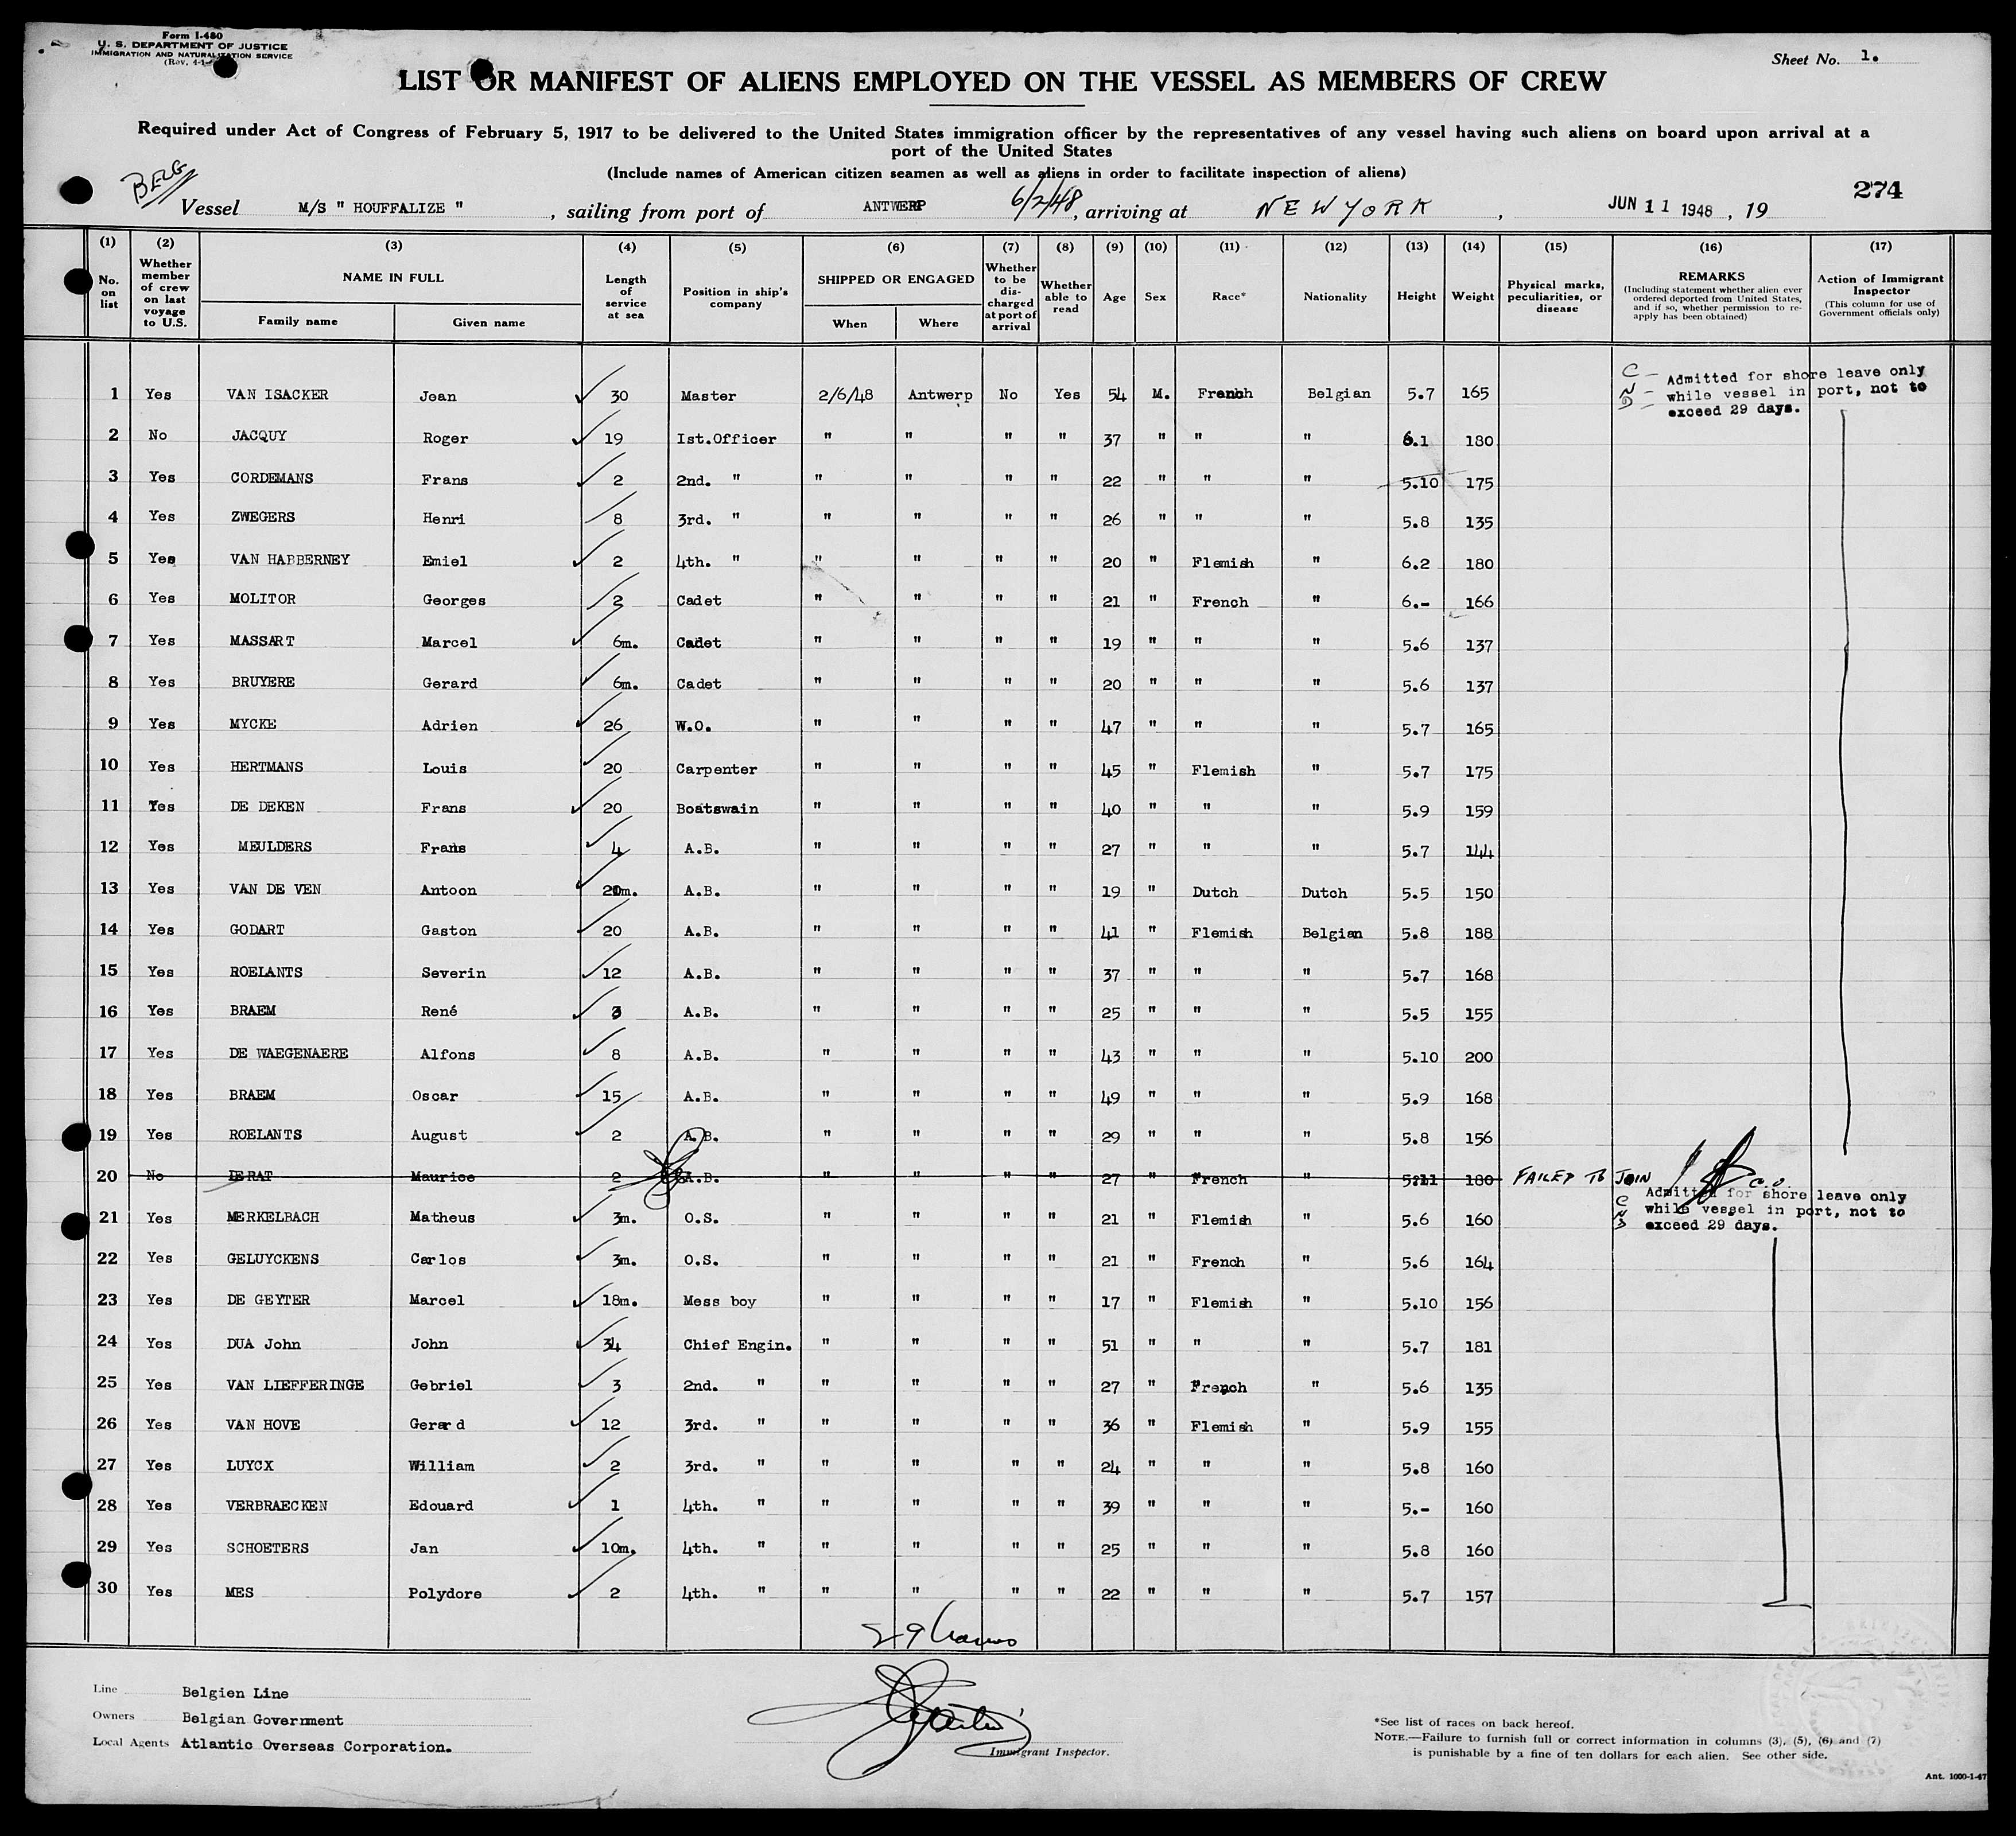 Form I-480
U. S. DEPARTMENT OF JUSTICE
IMMIGRATION AND NATURALIZATION SERVICE
Sheet No. 1.
LIST OR MANIFEST OF ALIENS EMPLOYED ON THE VESSEL AS MEMBERS OF CREW
Required under Act of Congress of February 5, 1917 to be delivered to the United States immigration officer by the representatives of any vessel having such aliens on board upon arrival at a
port of the United States
(Include names of American citizen seamen as well as aliens in order to facilitate inspection of aliens)
BELG
274
Vessel M/S " HOUFFALIZE " , sailing from port of ANTWERP 6/2/48, arriving at NEW YORK , JUN 11 1948 , 19
(1) (2) (3) (4) (5) (6) (7) (8) (9) (10) (11) (12) (13) (14) (15) (16) (17)
No. on list
Whether member of crew on last voyage to U.S.
NAME IN FULL
Family name Given name
Length of service at sea
Position in ship's company
SHIPPED OR ENGAGED
When Where
Whether to be discharged at port of arrival
Whether able to read
Age
Sex
Race*
Nationality
Height
Weight
Physical marks, peculiarities, or disease
REMARKS
(Including statement whether alien ever ordered deported from United States, and if so, whether permission to re-apply has been obtained)
Action of Immigrant Inspector
(This column for use of Government officials only)
1 Yes VAN ISACKER Jean 30 Master 2/6/48 Antwerp No Yes 54 M. French Belgian 5.7 165
C - Admitted for shore leave only
N - while vessel in port, not to
D - exceed 29 days.
2 No JACQUY Roger 19 Ist.Officer " " " " 37 " " " 6.1 180
3 Yes CORDEMANS Frans 2 2nd. " " " " " 22 " " " 5.10 175
4 Yes ZWEGERS Henri 8 3rd. " " " " " 26 " " " 5.8 135
5 Yes VAN HABBERNEY Emiel 2 4th. " " " " " 20 " Flemish " 6.2 180
6 Yes MOLITOR Georges 2 Cadet " " " " 21 " French " 6.- 166
7 Yes MASSART Marcel 6m. Cadet " " " " 19 " " " 5.6 137
8 Yes BRUYERE Gerard 6m. Cadet " " " " 20 " " " 5.6 137
9 Yes MYCKE Adrien 26 W.O. " " " " 47 " " " 5.7 165
10 Yes HERTMANS Louis 20 Carpenter " " " " 45 " Flemish " 5.7 175
11 Yes DE DEKEN Frans 20 Boatswain " " " " 40 " " " 5.9 159
12 Yes MEULDERS Frans 4 A.B. " " " " 27 " " " 5.7 144
13 Yes VAN DE VEN Antoon A.B. " " " " 19 " Dutch Dutch 5.5 150
14 Yes GODART Gaston 20 A.B. " " " " 41 " Flemish Belgian 5.8 188
15 Yes ROELANTS Severin 12 A.B. " " " " 37 " " " 5.7 168
16 Yes BRAEM René 3 A.B. " " " " 25 " " " 5.5 155
17 Yes DE WAEGENAERE Alfons 8 A.B. " " " " 43 " " " 5.10 200
18 Yes BRAEM Oscar 15 A.B. " " " " 49 " " " 5.9 168
19 Yes ROELANTS August 2 A.B. " " " " 29 " " " 5.8 156
20 No DERAT Maurice 2 A.B. " " " " 27 " French " 5.11 180 FAILED TO JOIN
C Admitted for shore leave only
N while vessel in port, not to
D exceed 29 days.
21 Yes MERKELBACH Matheus 3m. O.S. " " " " 21 " Flemish " 5.6 160
22 Yes GELUYCKENS Carlos 3m. O.S. " " " " 21 " French " 5.6 164
23 Yes DE GEYTER Marcel 18m. Mess boy " " " " 17 " Flemish " 5.10 156
24 Yes DUA John John 34 Chief Engin. " " " " 51 " " " 5.7 181
25 Yes VAN LIEFFERINGE Gebriel 3 2nd. " " " " " 27 " French " 5.6 135
26 Yes VAN HOVE Gerard 12 3rd. " " " " " 36 " Flemish " 5.9 155
27 Yes LUYCX William 2 3rd. " " " " " 24 " " " 5.8 160
28 Yes VERBRAECKEN Edouard 1 4th. " " " " " 39 " " " 5.- 160
29 Yes SCHOETERS Jan 10m. 4th. " " " " " 25 " " " 5.8 160
30 Yes MES Polydore 2 4th. " " " " " 22 " " " 5.7 157
29
Line Belgien Line
Owners Belgian Government
Local Agents Atlantic Overseas Corporation.
Immigrant Inspector.
*See list of races on back hereof.
NOTE.—Failure to furnish full or correct information in columns (3), (5), (6) and (7)
is punishable by a fine of ten dollars for each alien. See other side.
Ant. 1000-1-47